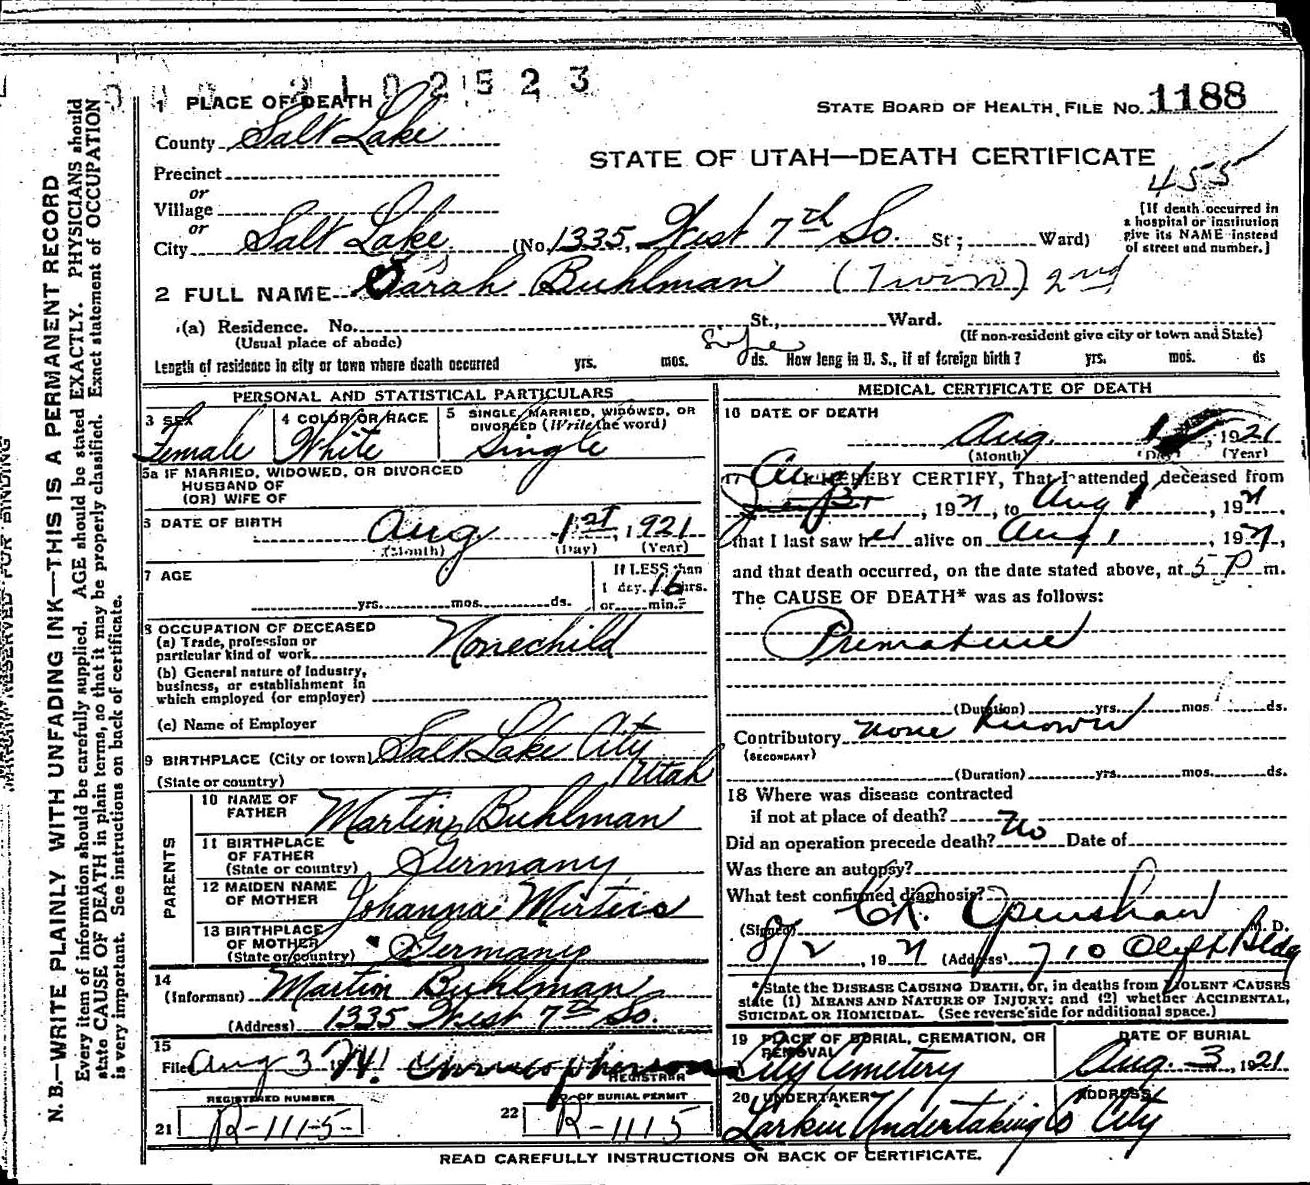 2102523
1 PLACE OF DEATH
STATE BOARD OF HEALTH, FILE No. 1188
County Salt Lake
STATE OF UTAH—DEATH CERTIFICATE
455
Precinct
or
Village
or
City Salt Lake (No. 1335 West 7th So. St; Ward)
[If death occurred in
a hospital or institution
give its NAME instead
of street and number.]
2 FULL NAME Sarah Buhlman (Twin) 2nd
(a) Residence. No. St., Ward.
(Usual place of abode)
(If non-resident give city or town and State)
Length of residence in city or town where death occurred yrs. mos. ds. How long in U. S., if of foreign birth? yrs. mos. ds
PERSONAL AND STATISTICAL PARTICULARS
3 SEX
Female
4 COLOR OR RACE
White
5 SINGLE, MARRIED, WIDOWED, OR
DIVORCED (Write the word)
Single
5a IF MARRIED, WIDOWED, OR DIVORCED
HUSBAND OF
(OR) WIFE OF
6 DATE OF BIRTH
Aug 1st, 1921
(Month) (Day) (Year)
7 AGE
yrs. mos. ds.
If LESS than
1 day 16 hrs.
or min.?
8 OCCUPATION OF DECEASED
(a) Trade, profession or
particular kind of work None child
(b) General nature of industry,
business, or establishment in
which employed (or employer)
(c) Name of Employer
9 BIRTHPLACE (City or town) Salt Lake City
(State or country) Utah
PARENTS
10 NAME OF
FATHER Martin Buhlman
11 BIRTHPLACE
OF FATHER
(State or country) Germany
12 MAIDEN NAME
OF MOTHER Johanna
13 BIRTHPLACE
OF MOTHER
(State or country) Germany
14
(Informant) Martin Buhlman
(Address) 1335 West 7th So.
15
Filed Aug 3
REGISTRAR
REGISTERED NUMBER
21 R-1115
22 OF BURIAL PERMIT
R-1115
MEDICAL CERTIFICATE OF DEATH
16 DATE OF DEATH
Aug. 1, 1921
(Month) (Day) (Year)
17 I HEREBY CERTIFY, That I attended deceased from
Aug 1, 1921, to Aug 1, 1921,
that I last saw her alive on Aug 1, 1921,
and that death occurred, on the date stated above, at 5 P m.
The CAUSE OF DEATH* was as follows:
Premature
(Duration) yrs. mos. ds.
Contributory none known
(SECONDARY)
(Duration) yrs. mos. ds.
18 Where was disease contracted
if not at place of death?
Did an operation precede death? No Date of
Was there an autopsy?
What test confirmed diagnosis?
(Signed) C.R. Openshaw M. D.
8/2, 1921 (Address) 710 Clift Bldg
*State the DISEASE CAUSING DEATH, or, in deaths from VIOLENT CAUSES
state (1) MEANS AND NATURE OF INJURY; and (2) whether ACCIDENTAL,
SUICIDAL OR HOMICIDAL. (See reverse side for additional space.)
19 PLACE OF BURIAL, CREMATION, OR
REMOVAL
City Cemetery
DATE OF BURIAL
Aug. 3, 1921
20 UNDERTAKER
Larkin Undertaking Co
ADDRESS
City
READ CAREFULLY INSTRUCTIONS ON BACK OF CERTIFICATE.
MARGIN RESERVED FOR BINDING
N. B.—WRITE PLAINLY WITH UNFADING INK—THIS IS A PERMANENT RECORD
Every item of information should be carefully supplied. AGE should be stated EXACTLY. PHYSICIANS should
state CAUSE OF DEATH in plain terms, so that it may be properly classified. Exact statement of OCCUPATION
is very important. See instructions on back of certificate.